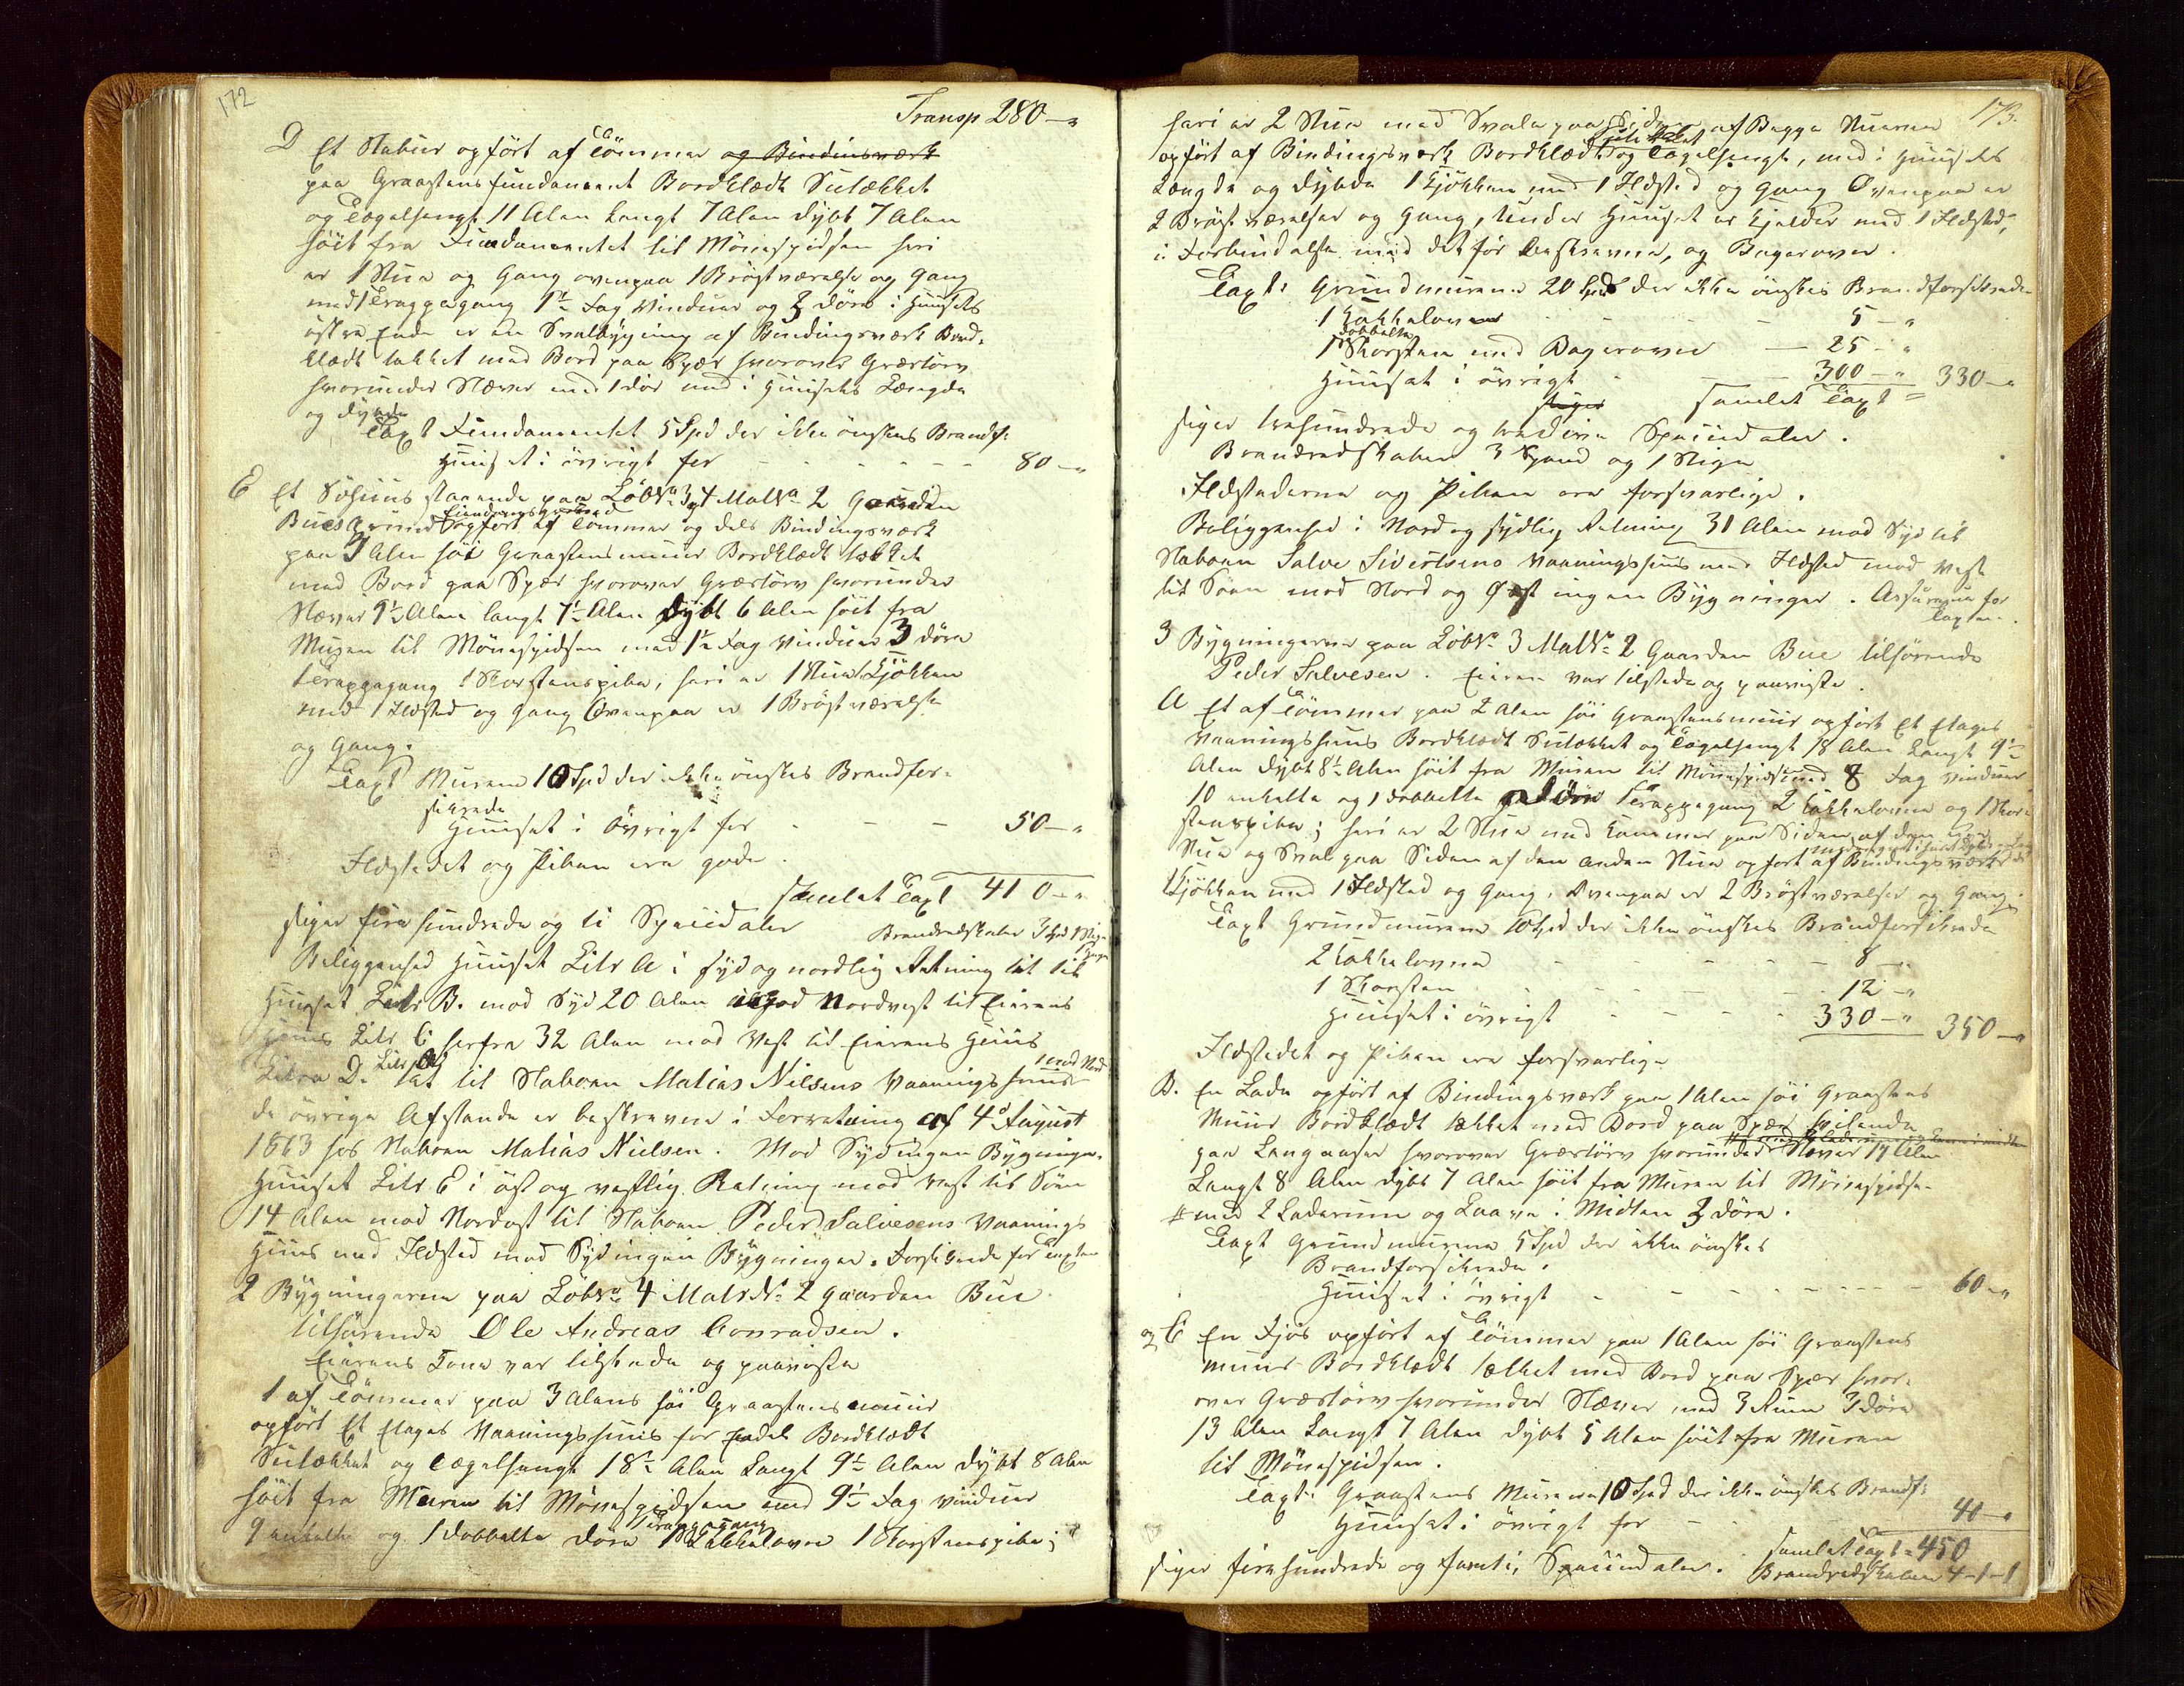 172
Transp 280 — "
D Et Stabuur opført af Tømmer og Bindingsværk
paa Graastensfundament Bordklædt Sutækket
og Tegelhængt 11 Alen Langt 7 Alen dybt 7 Alen
høit fra Fundamentet til Mønespidsen heri
er 1 Stue og Gang ovenpaa 1 Brøstværelse og Gang
med 1 Trappegang 1½ Fag Vinduer og 3 døre i Huusets
østre Ende er en Svalbygning af Bindingsværk Bord-
klædt tækket med Bord paa Spær hvorover Græstørv
hvorunder Næver med 1 dør med i Huusets Længde
og dybde
Taxt Fundamentet 5 Spd der ikke ønskes Brandf:
Huuset i øvrigt for — 80 — "
E Et Søhuus staaende paa Løb№ 3 og 4 Mat№ 2 Gaarden
Bues Grund Eiendomsgrund opført af Tømmer og dels Bindingsværk
paa 3 Alen høi Graastensmuur Bordklædt tækket
med Bord paa Spær hvorover Græstørv hvorunder
Næver 9½ Alen langt 7½ Alen dybt 6 Alen høit fra
Muren til Mønespidsen med 1½ Fag Vinduer 3 døre
1 Trappegang 1 Skorstenspibe; heri er 1 Stue 1 Kjøkken
med 1 Ildsted og Gang Ovenpaa er 1 Brøstværelse
og Gang.
Taxt Muren 10 Spd der ikke ønskes Brandfor-
sikrede
Huuset i øvrigt for — — — 50 — "
Ildstedet og Piben ere gode.
samlet Taxt 410 — "
siger fire hundrede og ti Speciedaler Brandredskaber 3 Spd 1 Stige
Beliggenhed Huuset Litr A i syd og nordlig Retning tit til
Huuset Litr B. mod Syd 20 Alen imod Nordvest til Eierens
Huus Litr C herfra 32 Alen mod Vest til Eierens Huus
Litra D. Litr til Naboen Matias Nilsens Vaaningshuus mod Nord
de øvrige Afstande er beskrevne i Forretning af 4de August
1863 hos Naboen Matias Nielsen. Mod Syd ingen Bygninger.
Huuset Litr E i øst og vestlig Retning mod Vest til Søen
14 Alen mod Nordost til Naboen Peder Salvesens Vaanings
Huus med Ildsted mod Syd ingen Bygninger. Forsikrede for Taxten
2 Bygningerne paa Løb№ 4 Matr№ 2 Gaarden Bue
tilhørende Ole Andreas Conradsen.
Eierens Kone var tilstede og paaviste
1 af Tømmer paa 3 Alens høi Graastensmuur
opført Et Etages Vaaningshuus for endel Bordklædt
Sutækket og Tegelhængt 18½ Alen Langt 9½ Alen dybt 8 Alen
høit fra Muren til Mønespidsen med 9½ Fag Vinduer
9 enkelte og 1 dobbelte døre 1 Trappegang 1 Kakkelovn 1 Skorstenspibe;
173.
heri er 2 Stue med Svale paa Siden af Begge Stuerne
opført af Bindingsværk Bordklædt sutækket og Tegelhængt, med i Huusets
Længde og dybde 1 Kjøkken med 1 Ildsted og Gang Ovenpaa er
2 Brøstværelser og Gang, Under Huuset er Kjelder med 1 Ildsted,
i Forbindelse med det før beskrevne, og Bagerovn.
Taxt: Grundmurene 20 Spd der ikke ønskes Brandforsikrede
1 Kakkelovn — 5 — "
1 dobbelte Skorsten med Bagerovn — 25 — "
Huuset i øvrigt — 300 — " 330 — "
samlet Taxt
siger trehundrede og tredive Speciedaler.
Brandredskaber 3 Spand og 1 Stige
Ildstederne og Piben ere forsvarlige.
Beliggenhed i Nord og sydlig Retning 31 Alen mod Syd til
Naboen Salve Sivertsens Vaaningshuus med Ildsted mod Vest
til Søen mod Nord og Øst ingen Bygninger. Assurance for
Taxten.
3 Bygningerne paa Løb№ 3 Mat№ 2 Gaarden Bue tilhørende
Peder Salvesen. Eieren var tilstede og paaviste.
A Et af Tømmer paa 2 Alen høi Graastensmuur opført Et Etages
Vaaningshuus Bordklædt Sutækket og Tegelhængt 18 Alen Langt 9½
Alen dybt 8½ Alen høit fra Muren til Mønespidsen med 8 Fag Vinduer
10 enkelte og 1 dobbelte døre 1 Trappegang 2 Kakkelovne og 1 Skor-
stenspibe; heri er 2 Stue med Kammer paa Siden af den ene
Stue og Sval paa Siden af den anden Stue opført af Bindingsværk
1 Kjøkken med 1 Ildsted og Gang, Ovenpaa er 2 Brøstværelser og Gang.
Taxt Grundmurene 10 Spd der ikke ønskes Brandforsikrede
2 Kakkelovne — 8 — "
1 Skorsten — 12 — "
Huuset i øvrigt — 330 — " 350 — "
Ildstedet og Piben ere forsvarlige
B. En Lade opført af Bindingsværk paa 1 Alen høi Graastens
Muur Bordklædt tækket med Bord paa Spær hvilende
paa Langaaser hvorover Græstørv hvorunder Næver 14 Alen
Langt 8 Alen dybt 7 Alen høit fra Muren til Mønespidsen
# med 2 Laderum og Laave i Midten 3 døre.
Taxt Grundmurene 5 Spd der ikke ønskes
Brandforsikrede.
Huuset i øvrigt — 60 — "
og C En Fjøs opført af Tømmer paa 1 Alen høi Graastens
muur Bordklædt tækket med Bord paa Spær hvor-
over Græstørv hvorunder Næver med 3 Rum 3 døre
13 Alen Langt 7 Alen dybt 5 Alen høit fra Muren
til Mønespidsen.
Taxt: Graastens Murene 10 Spd der ikke ønskes Brandf:
Huuset i øvrigt for — 40 — "
samlet Taxt = 450
siger fire hundrede og femti Speciedaler. Brandredskaber 4-1-1